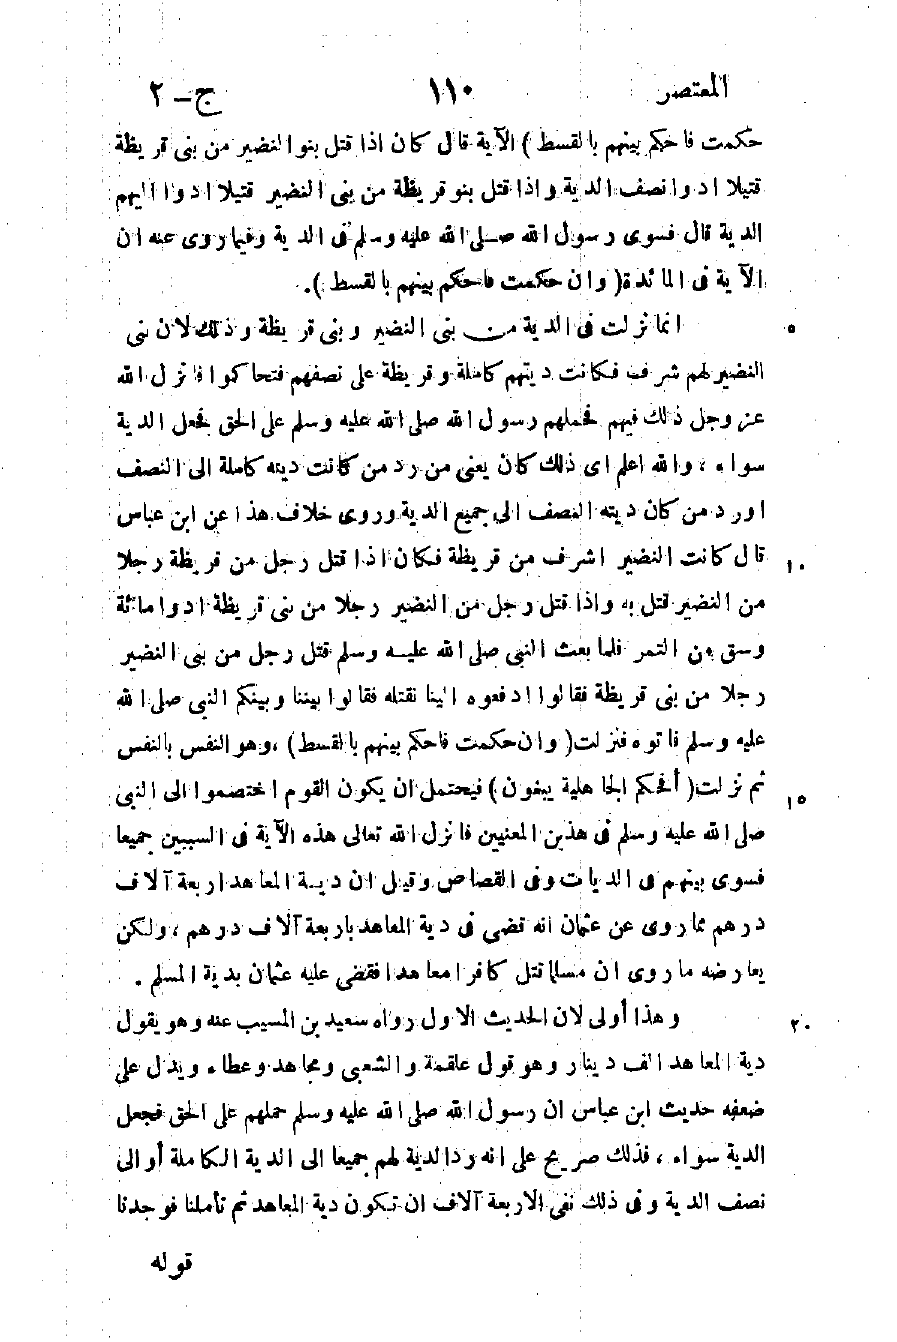 المعتصر ١١٠ ج - ٢
حكمت فاحكم بينهم بالقسط ) الآية قال كان اذا قتل بنو النضير من بنى قريظة
قتيلا ادوا نصف الدية واذا قتل بنو قريظة من بنى النضير قتيلا ادوا اليهم
الدية قال فسوى رسول الله صلى الله عليه وسلم فى الدية وفيما روى عنه ان
الآية فى المائدة ( وان حكمت فاحكم بينهم بالقسط ) .
انما نزلت فى الدية من بنى النضير وبنى قريظة وذلك لان بنى ٥
النضير لهم شرف فكانت ديتهم كاملة وقريظة على نصفهم فتحاكموا فانزل الله
عز وجل ذلك فيهم فحملهم رسول الله صلى الله عليه وسلم على الحق فجعل الدية
سواء ، والله اعلم اى ذلك كان يعنى من رد من كانت ديته كاملة الى النصف
اورد من كان ديته النصف الى جميع الدية وروى خلاف هذا عن ابن عباس
قال كانت النضير اشرف من قريظة فكان اذا قتل رجل من قريظة رجلا ١٠
من النضير قتل به واذا قتل رجل من النضير رجلا من بنى قريظة ادوا مائة
وسق من التمر فلما بعث النبى صلى الله عليه وسلم قتل رجل من بنى النضير
رجلا من بنى قريظة فقالوا ادفعوه الينا نقتله فقالوا بيننا وبينكم النبى صلى الله
عليه وسلم فاتوه فنزلت ( وان حكمت فاحكم بينهم بالقسط ) ، وهو النفس بالنفس
ثم نزلت ( أفحكم الجاهلية يبغون ) فيحتمل ان يكون القوم اختصموا الى النبى ١٥
صلى الله عليه وسلم فى هذين المعنيين فانزل الله تعالى هذه الآية فى السببين جميعا
فسوى بينهم فى الديات وفى القصاص وقيل ان دية المعاهد اربعة آلاف
درهم مما روى عن عثمان انه قضى فى دية المعاهد باربعة آلاف درهم ، ولكن
يعارضه ما روى ان مسلما قتل كافرا معاهدا فقضى عليه عثمان بدية المسلم .
وهذا أولى لان الحديث الاول رواه سعيد بن المسيب عنه وهو يقول ٢٠
دية المعاهد الف دينار وهو قول علقمة والشعبى ومجاهد وعطاء ويدل على
ضعفه حديث ابن عباس ان رسول الله صلى الله عليه وسلم حملهم على الحق فجعل
الدية سواء ، فذلك صريح على انه رد الدية لهم جميعا الى الدية الكاملة أو الى
نصف الدية وفى ذلك نفى الاربعة آلاف ان تكون دية المعاهد ثم تأملنا فوجدنا
قوله